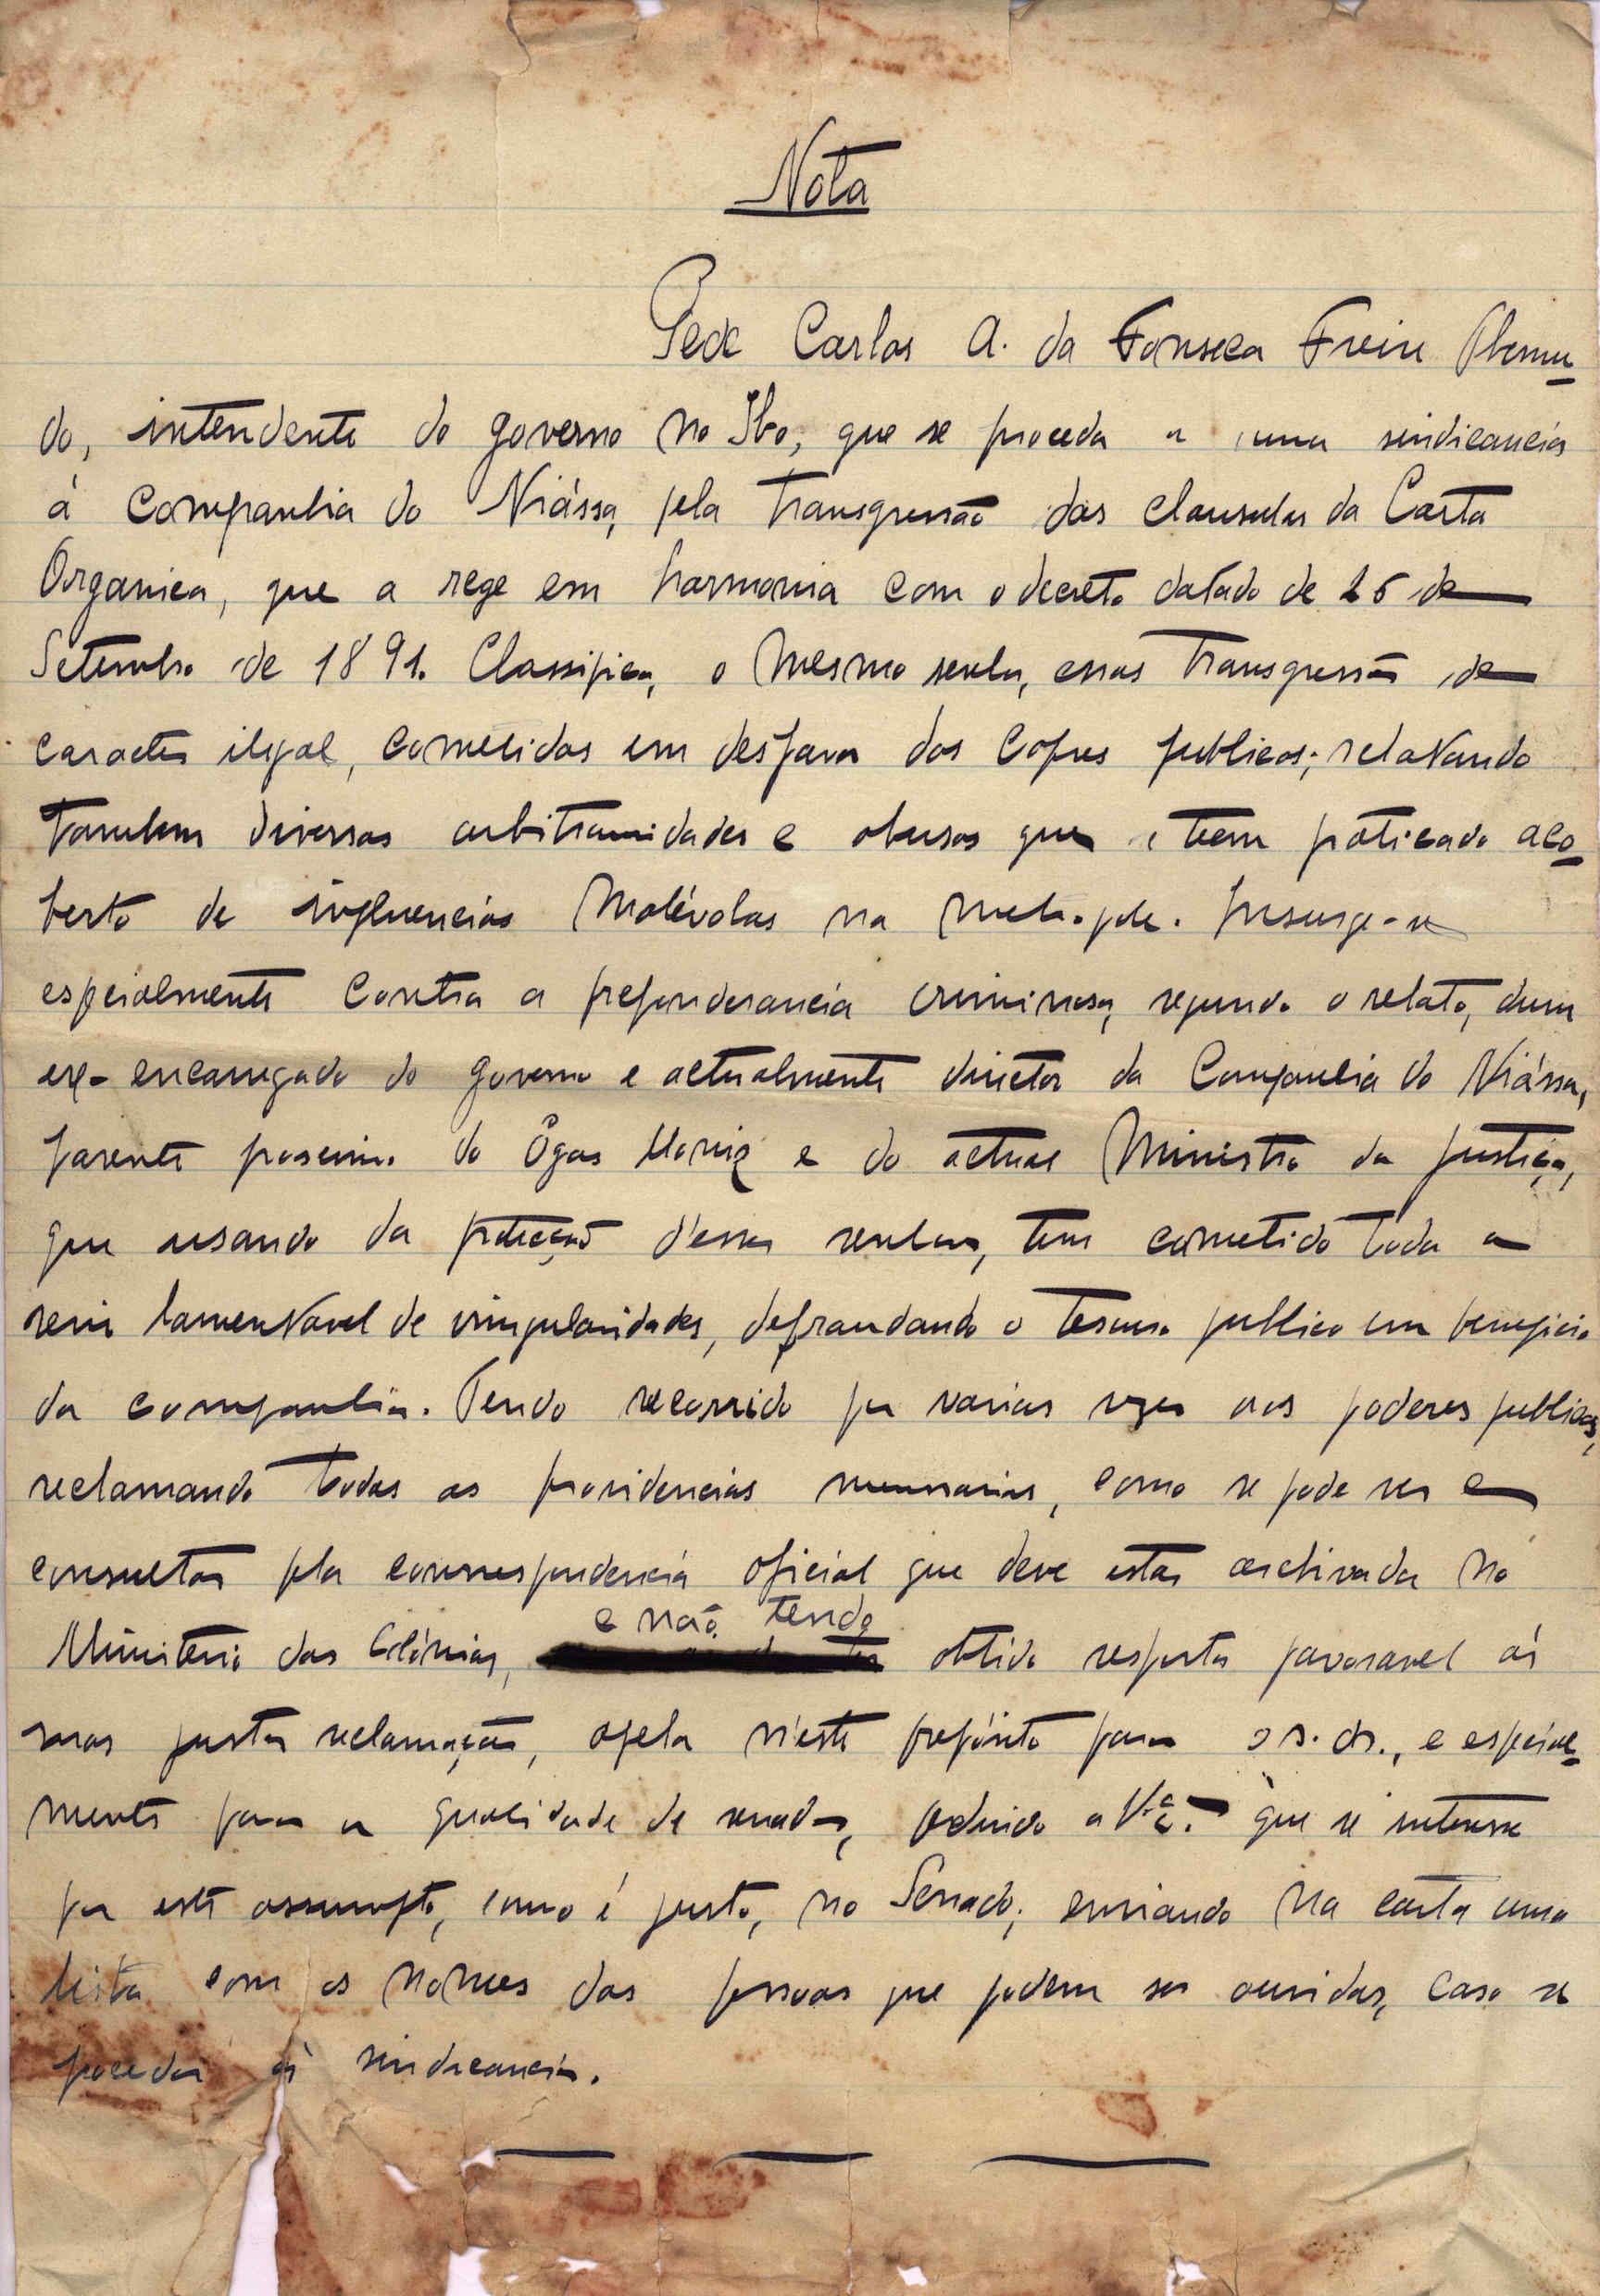 Nota
Pede Carlos A. da Fonseca Freire
do, intendente do governo no Ibo, que se proceda a uma sindicancia
á companhia do Niássa, pela transgressão das clausulas da Carta
Organica, que a rege em harmonia com o decreto datado de 26 de
Setembro de 1891. Classifica, o mesmo senhor, essas transgressão de
caracter ilegal, cometidas em desfavor dos cofres publicos; relatando
tambem diversas arbitrariedades e abusos que tem praticado aco-
berto de influencias malévolas na metropole. Insurge-se
especialmente contra a preponderancia criminosa, segundo o relato, dum
ex-encarregado do governo e actualmente director da Companhia do Niássa,
parente proximo do Egas Moniz e do actual Ministro da Justiça,
que usando da protecção d'esses senhores, tem cometido toda a
serie lamentavel de irregularidades, defraudando o tesouro publico em beneficio
da companhia. Tendo recorrido por varias vezes aos poderes publicos,
reclamando todas as providencias necessarias, como se pode ver e
consultar pela correspondencia oficial que deve estar archivada no
e não tendo
Ministerio das Colónias, obtido resposta favoravel ás
suas justas reclamações, apela n'este propósito para o s. dr., e especial-
mente para a qualidade de senador, pedindo a V.ª Ex.ª que se interesse
por este assumpto, como é justo, no Senado; enviando na carta uma
lista com os nomes das pessoas que podem ser ouvidas, caso se
proceda á sindicancia.